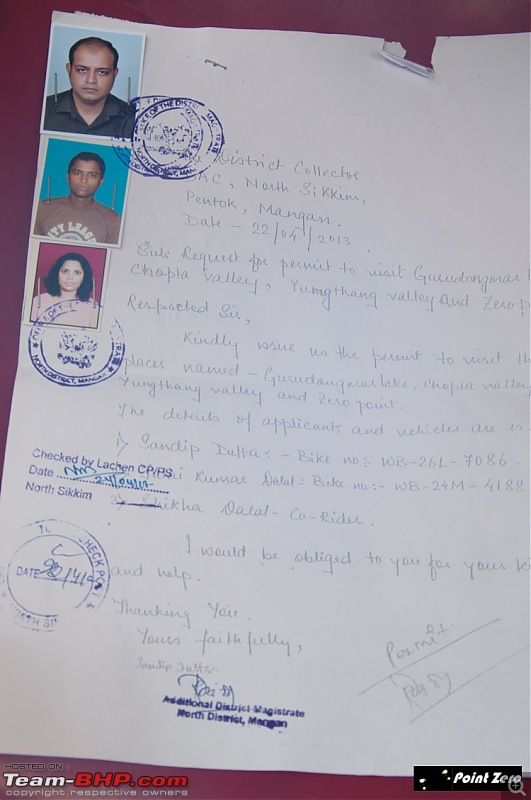 District Collector
DAC, North Sikkim,
Pentok, Mangan.
Date - 22/04/2013.
Sub: Request for permit to visit Gurudongmar
Chopta valley, Yumgthang valley and Zero p
Respected Sir,
Kindly issue us the permit to visit th
places named - Gurudangmar lake, Chopta valley,
Yumgthang valley and Zero point.
The details of applicants and vehicles are as
1) Sandip Dutta: - Bike no:- WB-26L-7086.
Kumar Dalal - Bike no:- WB-24M-4188
Shikha Dalal - Co-Rider.
I would be obliged to you for your ki
and help.
Thanking You.
Yours faithfully,
Sandip Dutta
Additional District Magistrate
North District, Mangan
Permit
Checked by Lachen CP/PS
Date 24/04/13
North Sikkim
CHECK POST
DATE
OFFICE OF THE DISTRICT MAGISTRATE
NORTH DISTRICT, MANGAN
NORTH DISTRICT, MANGAN
CITY LEAG
HOSTED ON
Team-BHP.com
copyright respective owners
Point Zero